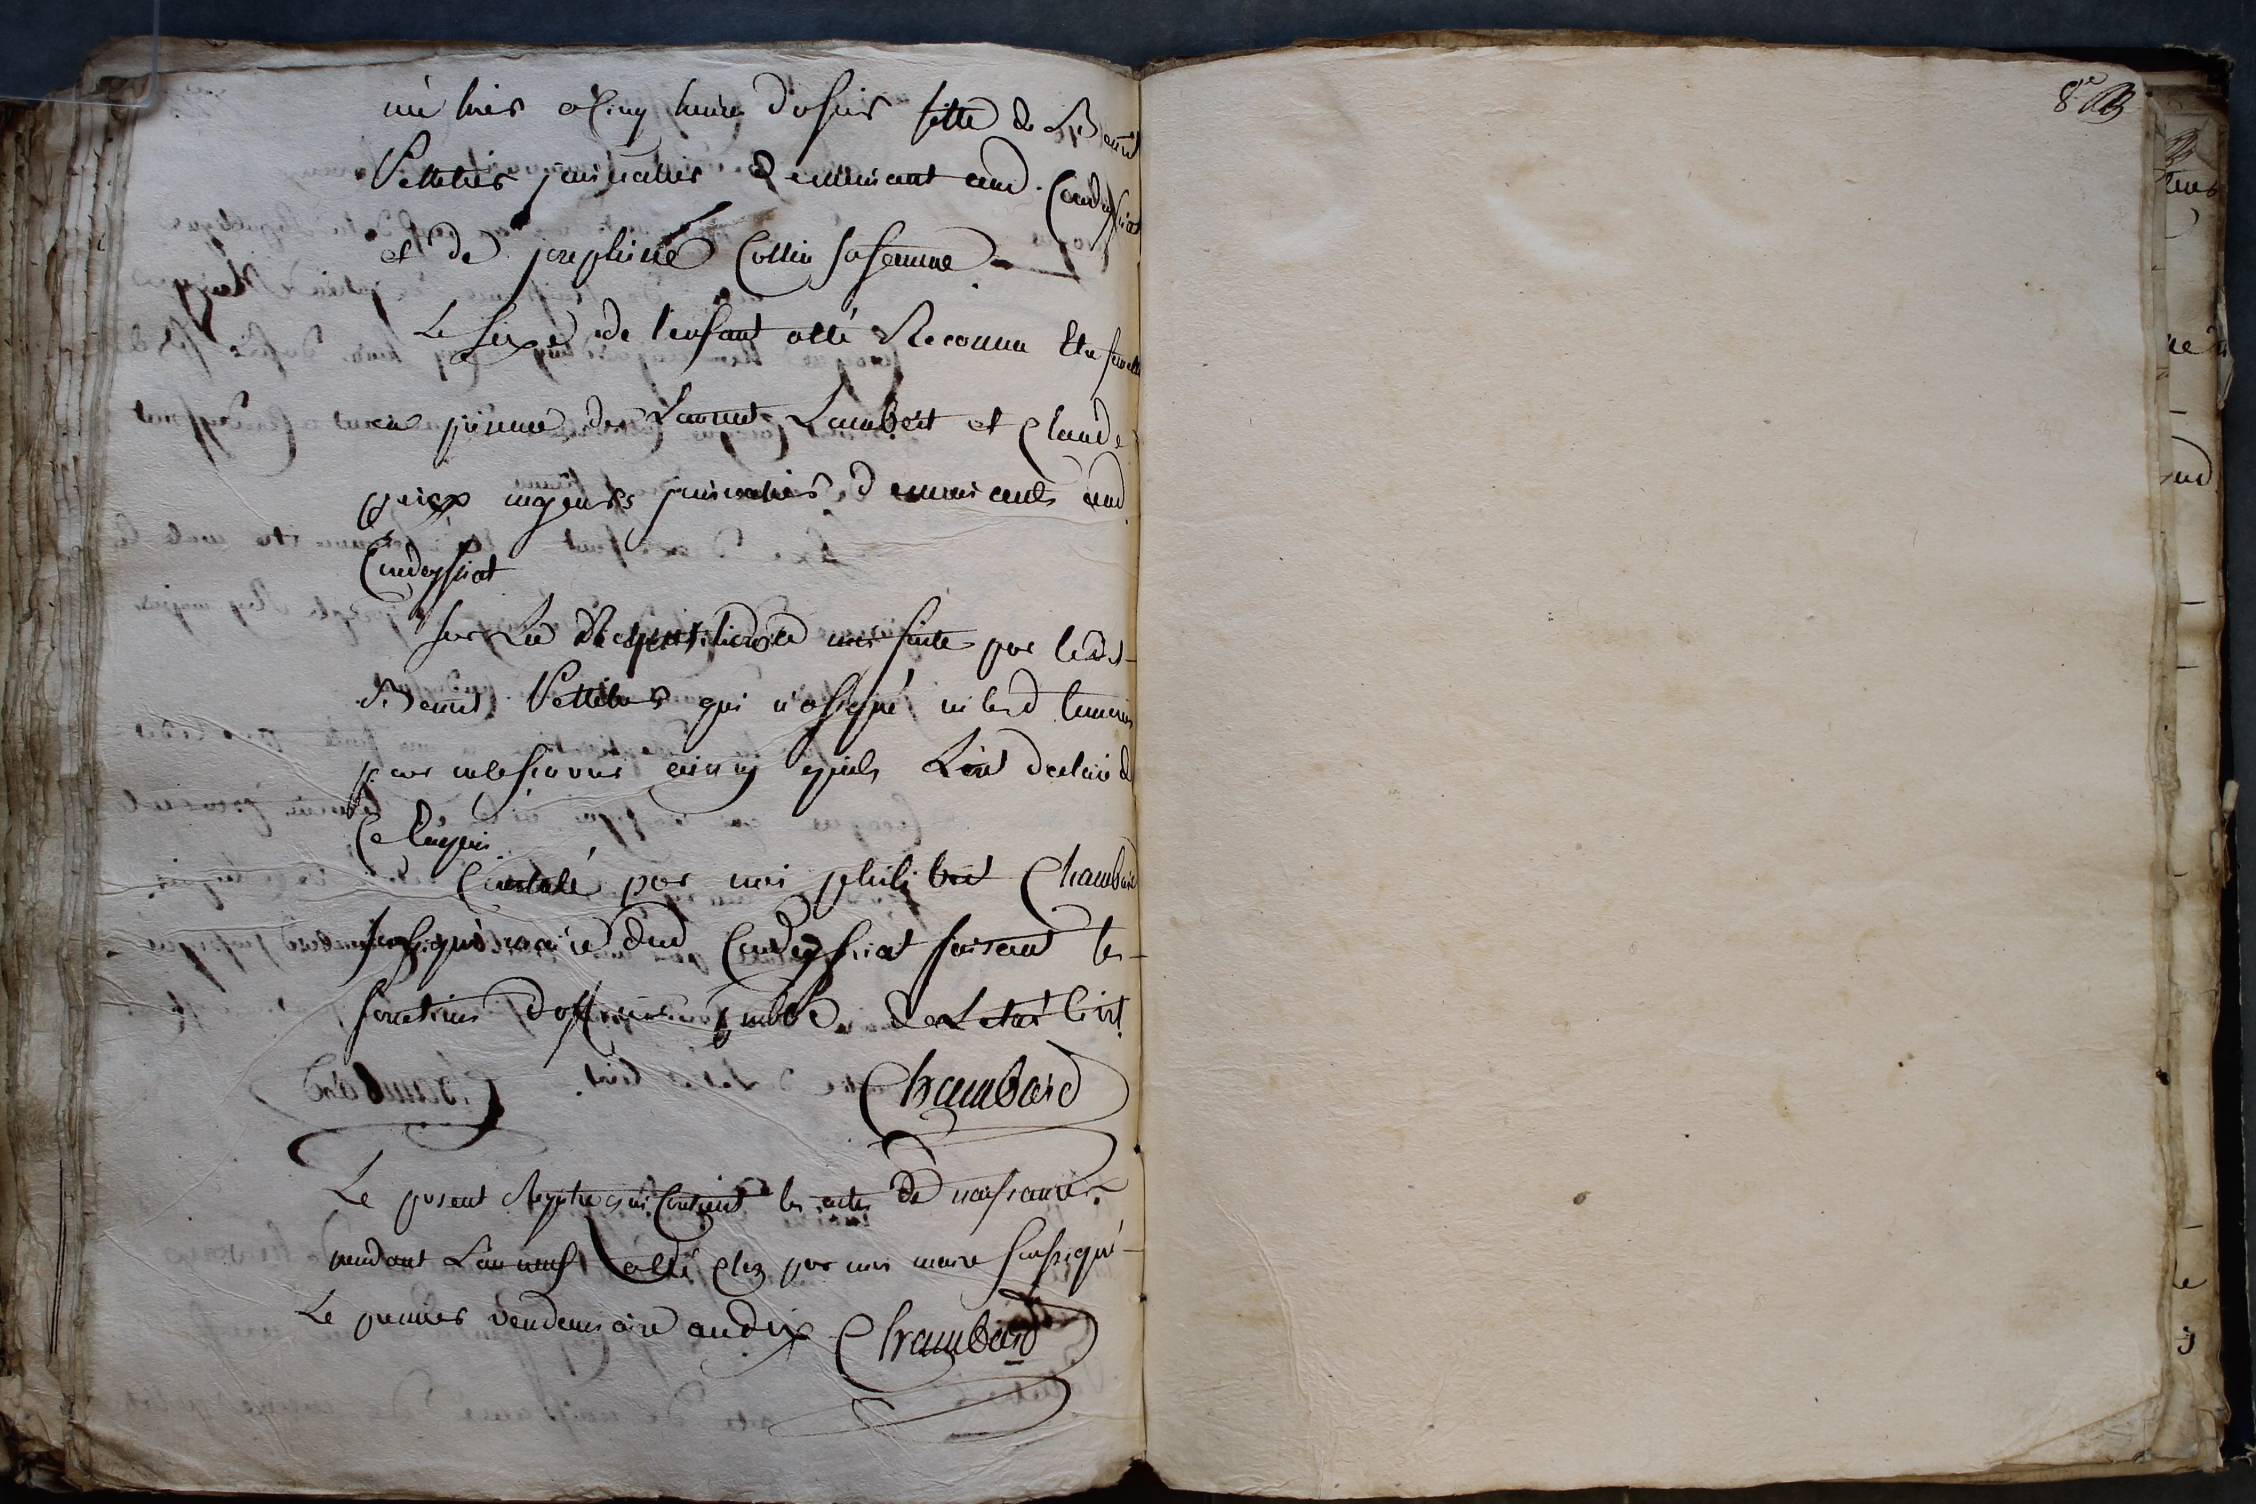 né hier a cinq heure du soir fille de Benoit
Pelletier journalier demeurant aud. Condeyssiat
et de josephine Collin sa femme
Le sexe de l'enfant a été Reconnu Etre femelle
en présence de Laurent Lambert et Claude
majeurs journaliers demeurants aud.
Condeyssiat
sur La Requisition a moi faite par led.
Benoit Pelletier qui n'a signé ni les d temoins
pour ne le scavoir ainsy quils L'ont declaré de
ce Enquis
Constaté par moi philibert Chambard
soussigné maire dud Condeyssiat faisant les
fonctions d'officier public de Letat Civil
Chambard
Le present Registre qui Contient les actes de naissance
pendant L'an neuf a été Clos par moi maire soussigné
Le premier vendemiaire an dix Chambard
8e